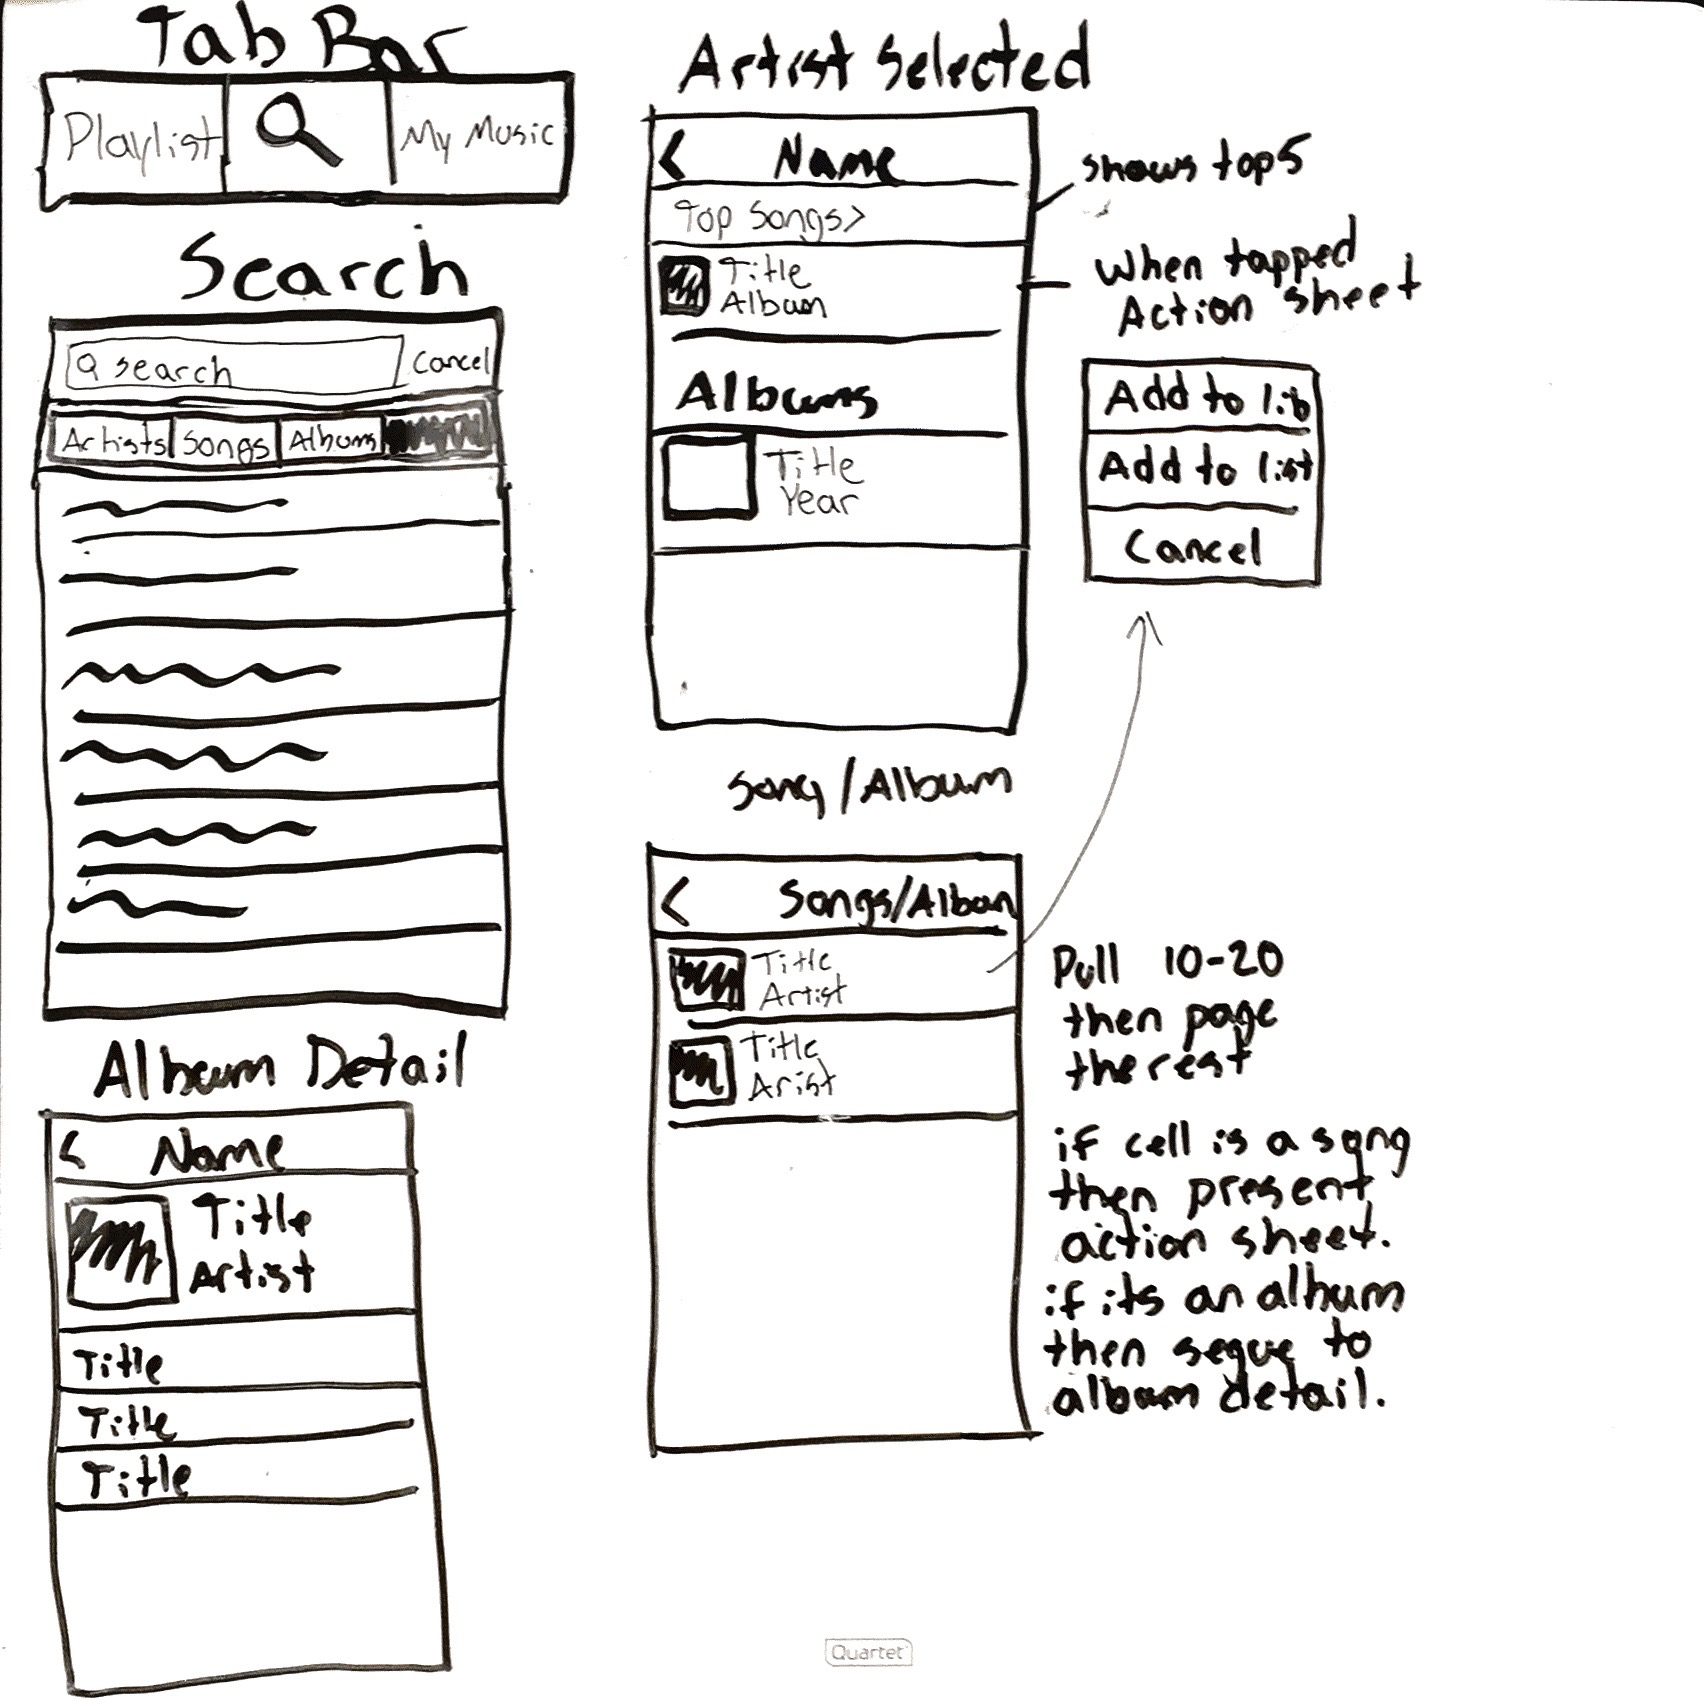 Tab Bar
Playlist
My Music
Search
search
Cancel
Artists
Songs
Albums
Album Detail
< Name
Title
Artist
Title
Title
Title
Artist Selected
< Name
Top Songs>
Title
Album
Albums
Title
Year
shows top 5
When tapped
Action sheet
Add to lib
Add to list
Cancel
Song/Album
< Songs/Album
Title
Artist
Title
Arist
Pull 10-20
then page
the rest
if cell is a song
then present
action sheet.
if its an album
then segue to
album detail.
Quartet